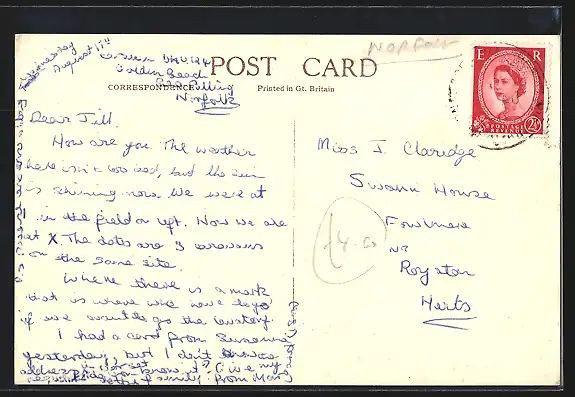 Wednesday
August 17th
Caravan
Golden Beach
Sea Palling
Norfolk
NORFOLK
POST CARD
CORRESPONDENCE
Printed in Gt. Britain
E R
POSTAGE
REVENUE
2½D
Dear Jill,
How are you. The weather
here isn't too bad, but the sun
is shining now. We were at
in the field on left. Now we are
at X. The dots are 3 caravans
on the same site.
Where there is a mark
that is where we have to go
if we want to go the lavatory.
I had a card from Suzanne
yesterday, but I don't know
address know it? Give my
family. from Mary
Miss J. Claridge
Swann House
Fowlmere
Nr
Royston
Herts